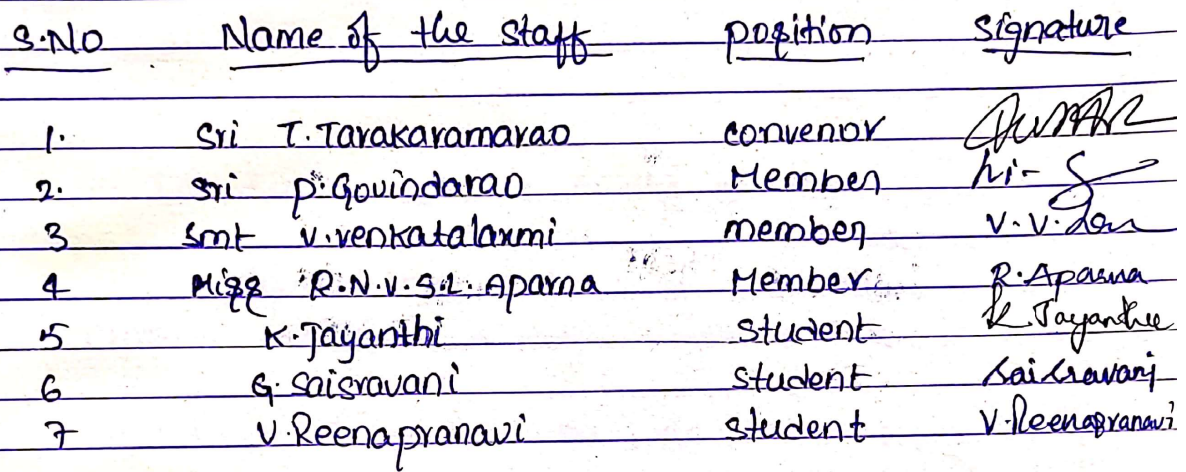 S.NO Name of the staff position signature
1. Sri T. Tarakaramarao convenor
2. Sri P. Govindarao Member
3 Smt V. Venkatalaxmi member V. V.
4 Miss R.N.V.S.L. Aparna Member R. Aparna
5 K. Jayanthi student K Jayanthi
6 G. Saisravani student Sai Sravani
7 V. Reenapranavi student V. Reenapranavi